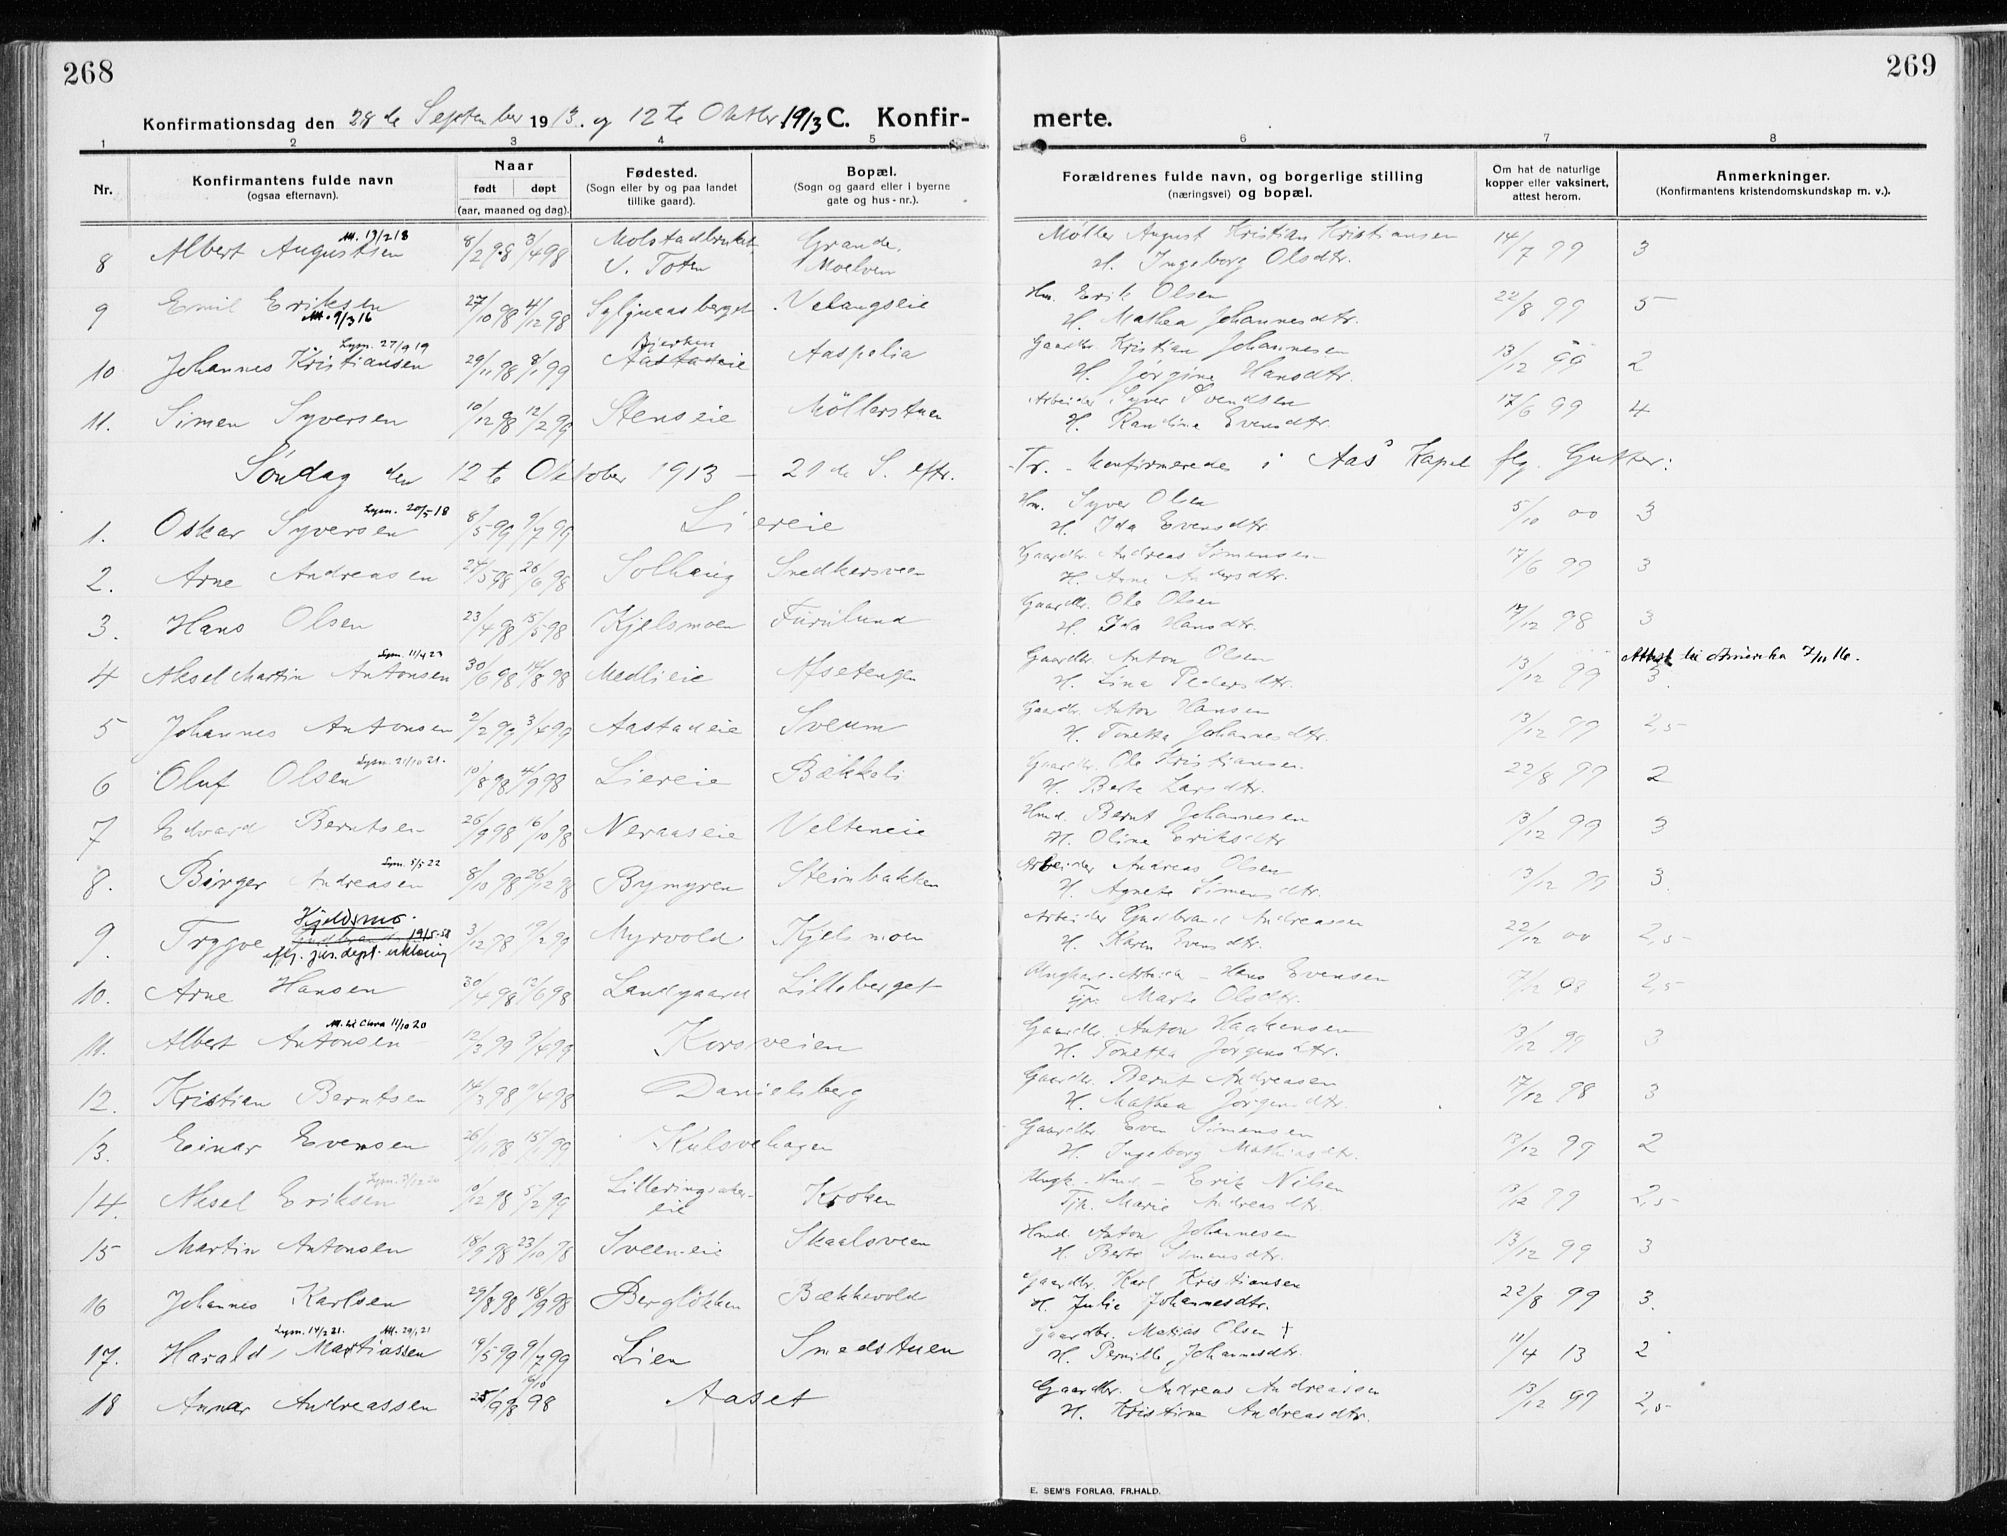 268
269
Konfirmationsdag den 28de September 1913. og 12te Oktbr 1913 C. Konfir-
merte.
1 2 3 4 5 6 7 8
Nr.
Konfirmantens fulde navn
(ogsaa efternavn).
Naar
født døpt
(aar, maaned og dag).
Fødested.
(Sogn eller by og paa landet
tillike gaard).
Bopæl.
(Sogn og gaard eller i byerne
gate og hus-nr.).
Forældrenes fulde navn, og borgerlige stilling
(næringsvei) og bopæl.
Om hat de naturlige
kopper eller vaksinert,
attest herom.
Anmerkninger.
(Konfirmantens kristendomskundskap m. v.).
8 Albert Augustsen 8/2 98 3/4 98 V. Toten Grande, Moelven Møller August Kristian Kristiansen 14/7 99 3
H. Ingeborg Olsdtr.
9 Emil Eriksen 27/10 98 4/12 98 Velangseie Hm. Erik Olsen 22/8 99 5
Att. 9/3 16 H. Mathea Johannesdtr.
Lysn. 27/9 19 Bjerken Gaardbr. Kristian Johannesen
10 Johannes Kristiansen 29/11 98 8/1 99 Aastadeie Aaspelia 13/12 99 2
H. Jørgine Hansdtr.
11. Simen Syversen 10/12 98 12/2 99 Stenseie Möllerstuen Arbeider Syver Svendsen 17/6 99 4
H. Randine Evensdtr.
Søndag den 12te Oktober 1913 – 21de S. eftr. Tr. – konfirmeredes i Aas Kapel flg. Gutter:
Lysn. 20/5 18
1. Oskar Syversen 8/5 99 9/7 99 Liereie Hm. Syver Olsen 5/10 00 3
H. Ida Evensdtr.
2. Arne Andreasen 27/5 98 26/6 98 Solhaug Snedkersveen Gaardbr. Andreas Simensen 17/6 99 3
H. Arne Andersdtr.
3. Hans Olsen 23/4 98 15/5 98 Kjelsmoen Furulund Gaardbr. Ole Olsen 17/12 98 3
H. Ida Hansdtr.
Lysn. 11/4 23 Attest til Amerika 7/11 16.
4 Aksel Martin Antonsen 30/6 98 14/8 98 Medlieie Afsetengen Gaardbr. Anton Olsen 13/12 99 3.
H. Lina Pedersdtr.
5 Johannes Antonsen 2/2 99 3/4 99 Aastadeie Sveum Gaardbr. Anton Hansen 13/12 99 2,5
H. Tonetta Johannesdtr.
Lysn. 21/10 21.
6 Oluf Olsen 10/8 98 4/9 98 Liereie Bækkeli Gaardbr. Ole Kristiansen 22/8 99 2
H. Berte Larsdtr.
7 Edvard Berntsen 26/9 98 16/10 98 Neraaseie Velteneie Hmd. Bernt Johannesen 13/12 99 3
H. Oline Eriksdtr
Lysn. 5/5 22
8. Birger Andreasen 8/10 98 26/12 98 Bymyren Steinbakken Arbeider Andreas Olsen 13/12 99 3.
H. Agnete Simensdtr.
Kjeldsmo.
9. Trygve Gudbrand 19/5-58 3/12 98 19/2 99 Myrvold Kjelsmoen Arbeider Gudbrand Andreassen 22/12 00 2,5
eftr. jus. dept. erklæring H. Karen Evensdtr.
10. Arne Hansen 30/4 98 12/6 98 Landgaard Lilleberget Ungkarl – Hans Evensen 7/12 98 2,5
Marte Olsdtr.
11/10 20
11. Albert Antonsen 12/3 99 9/4 99 Korsveien Gaardbr. Anton Haakensen 13/12 99 3
H. Tonetta Jørgensdtr.
12. Kristian Berntsen 14/3 98 9/4 98 Danielsberg Gaardbr. Bernt Andreasen 17/12 98 3
H. Mathea Jørgensdtr.
13. Einar Evensen 26/11 98 15/1 99 Kulsvehagen Gaardbr. Even Simensen 13/12 99 2
H. Ingeborg Mathiasdtr.
14. Aksel Eriksen 10/12 98 5/2 99 Lilleringsaker-eie Kroken Ungk. Hmd. – Erik Nilsen 13/12 99 2,5
Tjp. Marie Andreasdtr.
15 Martin Antonsen 18/9 98 23/10 98 Sveeneie Skaalsveen Hmd. Anton Johannesen 13/12 99 3
H. Berte Simensdtr.
16 Johannes Karlsen 29/8 98 18/9 98 Bergløkken Bækkevold Gaardbr. Karl Kristiansen 22/8 99 3.
H. Julie Johannesdtr.
Lysn. 14/2 21. Att. 29/1 21
17. Harald Martiassen 14/5 99 9/7 99 Lien Smedstuen Gaardbr. Matias Olsen † 11/4 13 2
H. Pernille Johannesdtr.
18 Annar Andreassen 25/9 98 16/10 98 Aaset Gaardbr. Andreas Andreassen 13/12 99 2,5
H. Kristine Andreasdtr.
E. SEM'S FORLAG, FR.HALD.